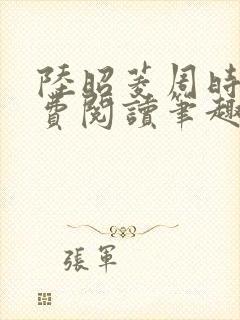 陸昭菱周時
費閱讀筆趣
張軍